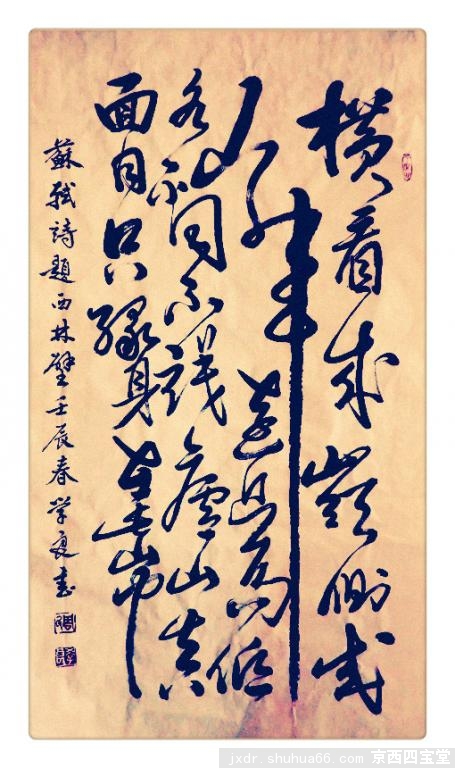 横看成嶺側成
峰遠近高低
各不同不識廬山真
面目只緣身在此山中
蘇軾詩題西林壁壬辰春学良書
jxdr.shuhua66.com 京西四宝堂